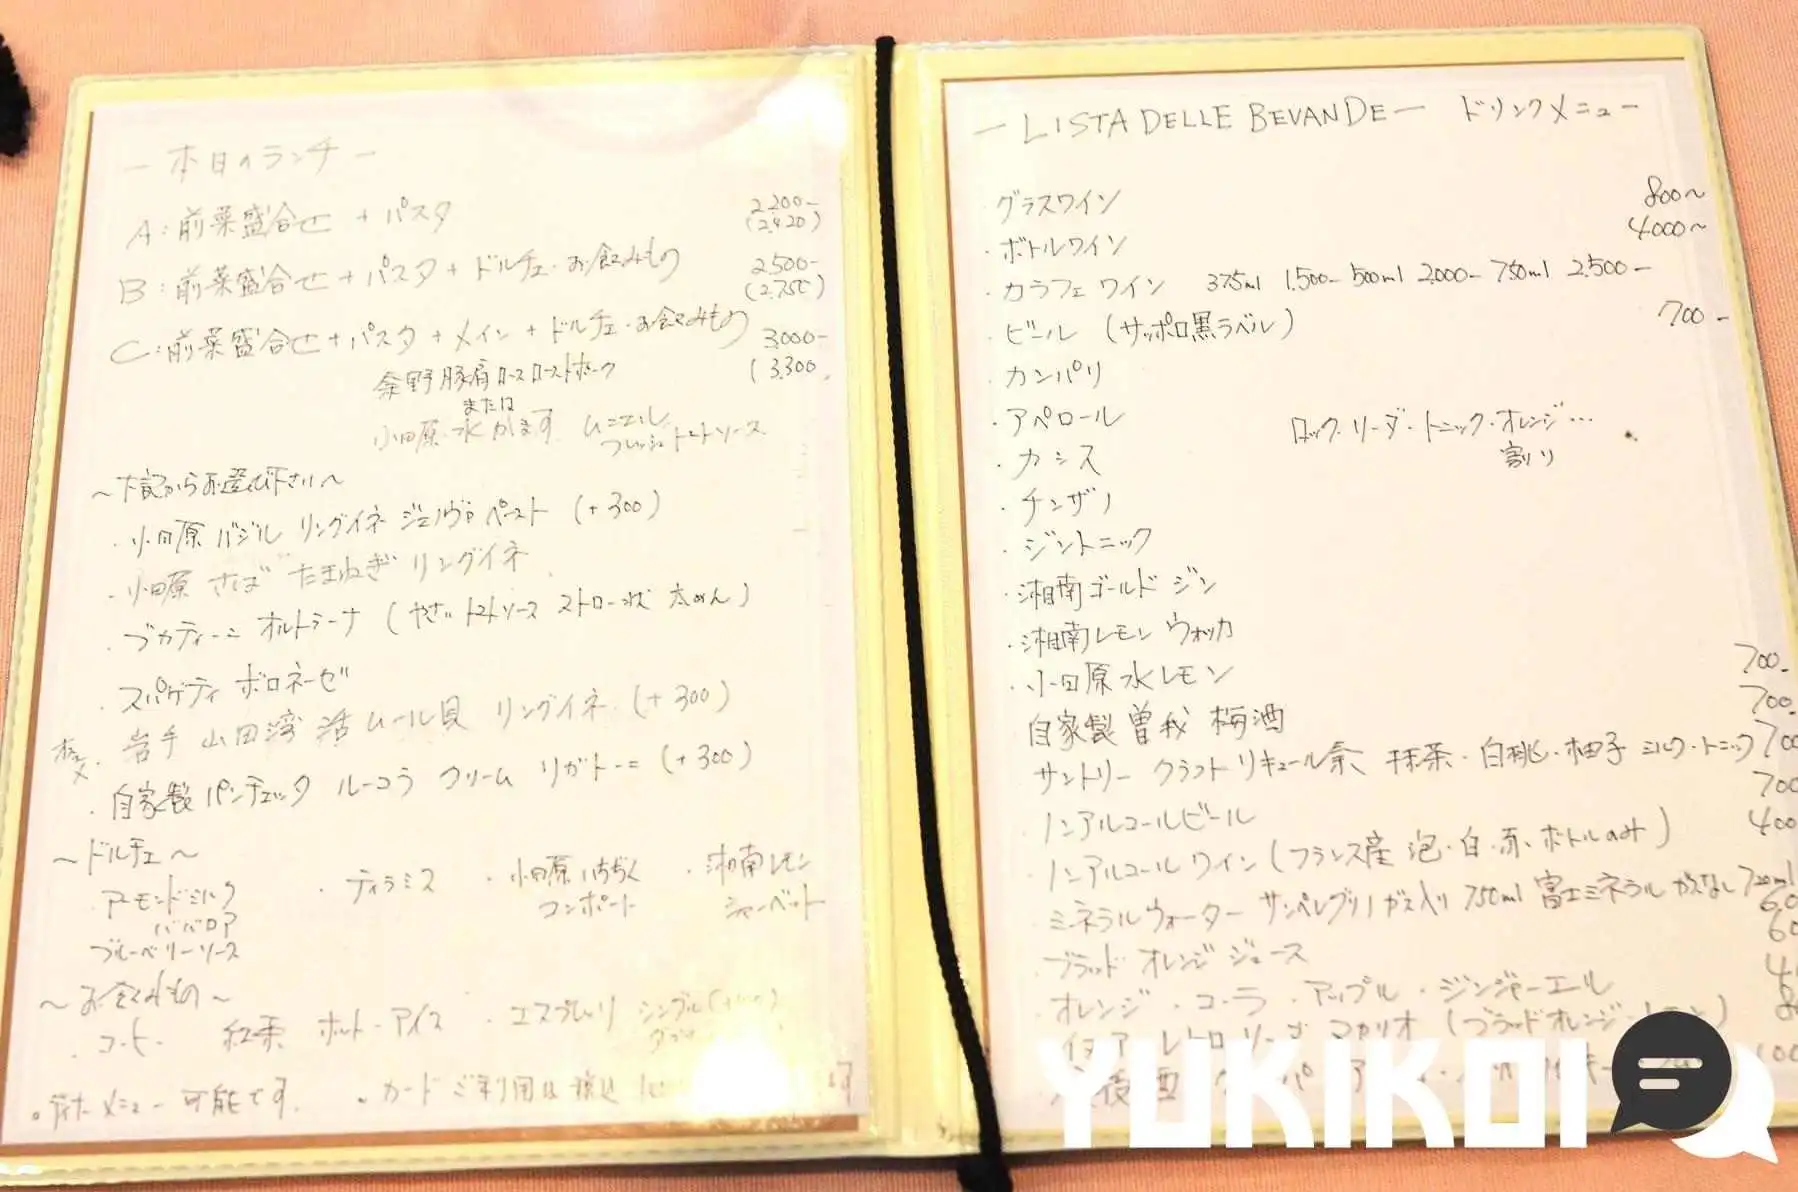 ー本日のランチー
A:前菜盛合せ + パスタ 2.200-
(2.420)
B:前菜盛合せ+パスタ+ドルチェ・お飲みもの 2.500-
(2.750)
C:前菜盛合せ+パスタ+メイン+ドルチェ・お飲みもの 3.000-
(3.300
豚肩ロースローストポーク
または
小田原・水かます ムニエル
フレッシュトマトソース
〜下記からお選び下さい〜
・小田原バジル リングイネ ジェノヴァペースト (+300)
・小田原 さば たまねぎ リングイネ
・ブカティーニ オルトラーナ (やさいトマトソース ストロー状 太めん)
・スパゲティ ボロネーゼ
・岩手 山田湾 活ムール貝 リングイネ (+300)
・自家製パンチェッタ ルーコラ クリーム リガトーニ (+300)
〜ドルチェ〜
アーモンドミルク
ババロア
ブルーベリーソース
・ティラミス
・小田原いちぢく
コンポート
・湘南レモン
シャーベット
〜お飲みもの〜
・コーヒー 紅茶 ホット・アイス ・エスプレッソ シンプル
・ディナーメニュー可能です。 ・カードご利用は税込
ーLISTA DELLE BEVANDEー ドリンクメニュー
・グラスワイン 800〜
・ボトルワイン 4.000〜
・カラフェワイン 375ml 1.500- 500ml 2.000- 750ml 2.500-
・ビール (サッポロ黒ラベル) 700-
・カンパリ
・アペロール ロック・ソーダ・トニック・オレンジ…
割り
・カシス
・チンザノ
・ジントニック
・湘南ゴールド ジン
・湘南レモン ウォッカ
・小田原水レモン 700-
自家製 曽我 梅酒 700.
サントリー クラフトリキュール 抹茶・白桃・柚子 ミルク・トニック 700
・ノンアルコールビール 700
・ノンアルコールワイン (フランス産 泡・白・赤・ボトルのみ) 400
・ミネラルウォーター サンペレグリノガス入り 750ml 富士ミネラル ガスなし
・ブラッド オレンジ ジュース
・オレンジ・コーラ・アップル・ジンジャーエール
YUKIKOI